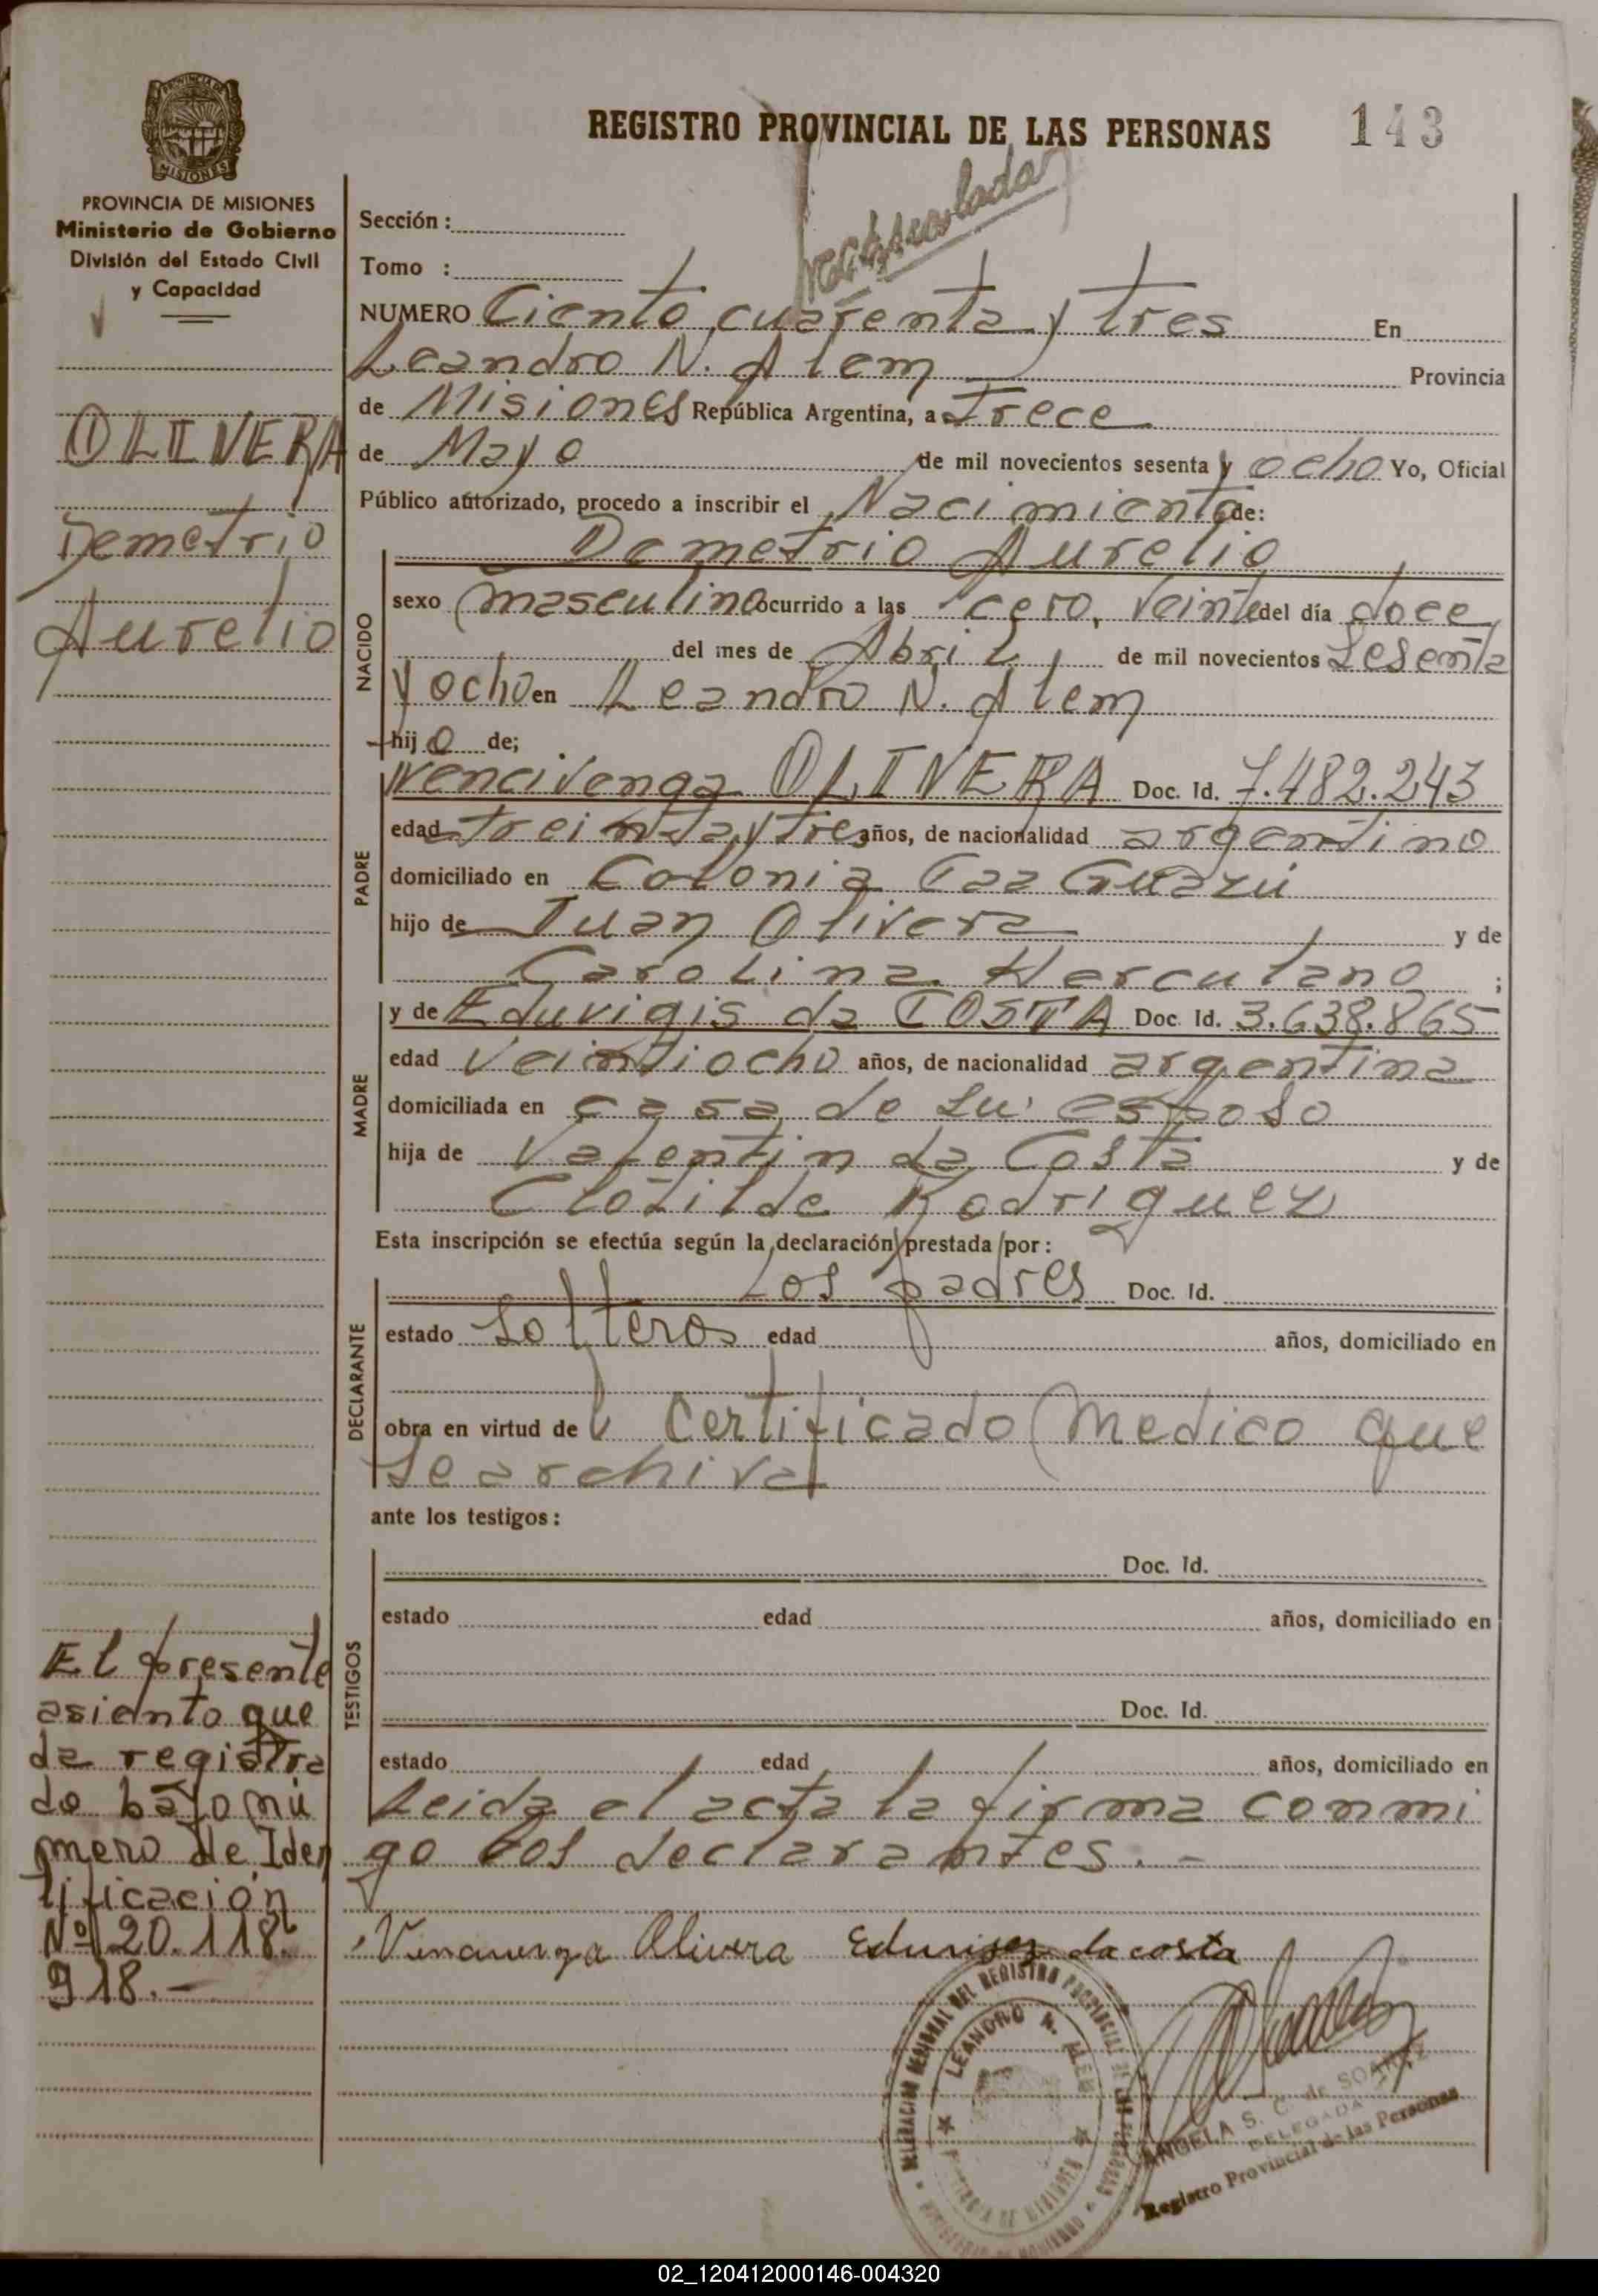 REGISTRO PROVINCIAL DE LAS PERSONAS 143
PROVINCIA DE
MISIONES
PROVINCIA DE MISIONES
Ministerio de Gobierno
División del Estado Civil
y Capacidad
OLIVERA
Demetrio
Aurelio
Sección :
Tomo :
NUMERO Ciento cuarenta y tres En
Leandro N. Alem Provincia
de Misiones República Argentina, a Trece
de Mayo de mil novecientos sesenta y ocho Yo, Oficial
Público autorizado, procedo a inscribir el Nacimiento de:
NACIDO
Demetrio Aurelio
sexo masculino ocurrido a las cero, veinte del día doce
del mes de Abril de mil novecientos sesenta
y ocho en Leandro N. Alem
hijo de;
PADRE
Vencivenga OLIVERA Doc. Id. 7.482.243
edad treinta y tres años, de nacionalidad argentino
domiciliado en Colonia Caa Guazú
hijo de Juan Olivera y de
Carolina Herculano ;
MADRE
y de Eduvigis da COSTA Doc. Id. 3.638.865
edad veintiocho años, de nacionalidad argentina
domiciliada en casa de su esposo
hija de Valentin da Costa y de
Clotilde Rodriguez
Esta inscripción se efectúa según la declaración prestada por :
DECLARANTE
Los padres Doc. Id.
estado Solteros edad años, domiciliado en
obra en virtud del Certificado Medico que
se archiva
ante los testigos :
TESTIGOS
Doc. Id.
estado edad años, domiciliado en
Doc. Id.
estado edad años, domiciliado en
Leida el acta la firma conmi
go los declarantes. -
El presente
asiento que
da registra
do bajo nú
mero de Iden
tificación
Nº 20.118.
918.-
Olivera da costa
DELEGACION REGIONAL DEL REGISTRO PROVINCIAL DE LAS PERSONAS
LEANDRO N. ALEM
PROVINCIA DE MISIONES
ANGELA S. C. de
DELEGADA
Registro Provincial de las Personas
02_120412000146-004320